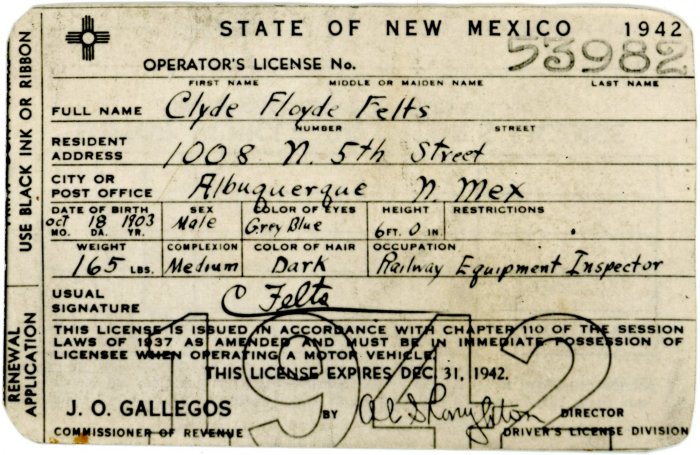 STATE OF NEW MEXICO 1942
OPERATOR'S LICENSE No. 53982
FIRST NAME MIDDLE OR MAIDEN NAME LAST NAME
FULL NAME Clyde Floyde Felts
NUMBER STREET
RESIDENT ADDRESS 1008 N. 5th Street
CITY OR POST OFFICE Albuquerque N. Mex
DATE OF BIRTH SEX COLOR OF EYES HEIGHT RESTRICTIONS
Oct 18 1903 Male Grey Blue 6 FT. 0 IN.
MO. DA. YR.
WEIGHT COMPLEXION COLOR OF HAIR OCCUPATION
165 LBS. Medium Dark Railway Equipment Inspector
USUAL SIGNATURE C Felts
THIS LICENSE IS ISSUED IN ACCORDANCE WITH CHAPTER 110 OF THE SESSION
LAWS OF 1937 AS AMENDED AND MUST BE IN IMMEDIATE POSSESSION OF
LICENSEE WHEN OPERATING A MOTOR VEHICLE.
THIS LICENSE EXPIRES DEC. 31, 1942.
1942
J. O. GALLEGOS BY DIRECTOR
COMMISSIONER OF REVENUE DRIVER'S LICENSE DIVISION
USE BLACK INK OR RIBBON
RENEWAL APPLICATION